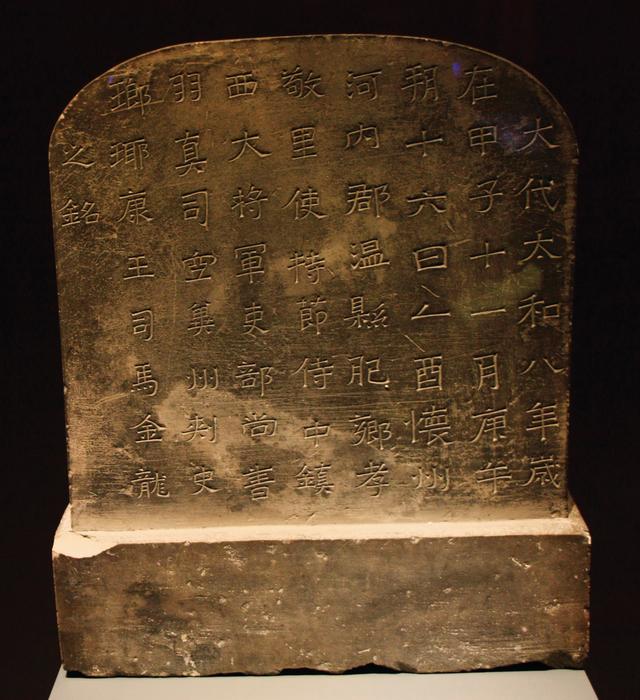 大代太和八年歲
在甲子十一月庚午
朔十六日乙酉懷州
河内郡温縣肥鄉孝
敬里使持節侍中鎮
西大將軍吏部尚書
羽真司空冀州刺史
瑯琊康王司馬金龍
之銘